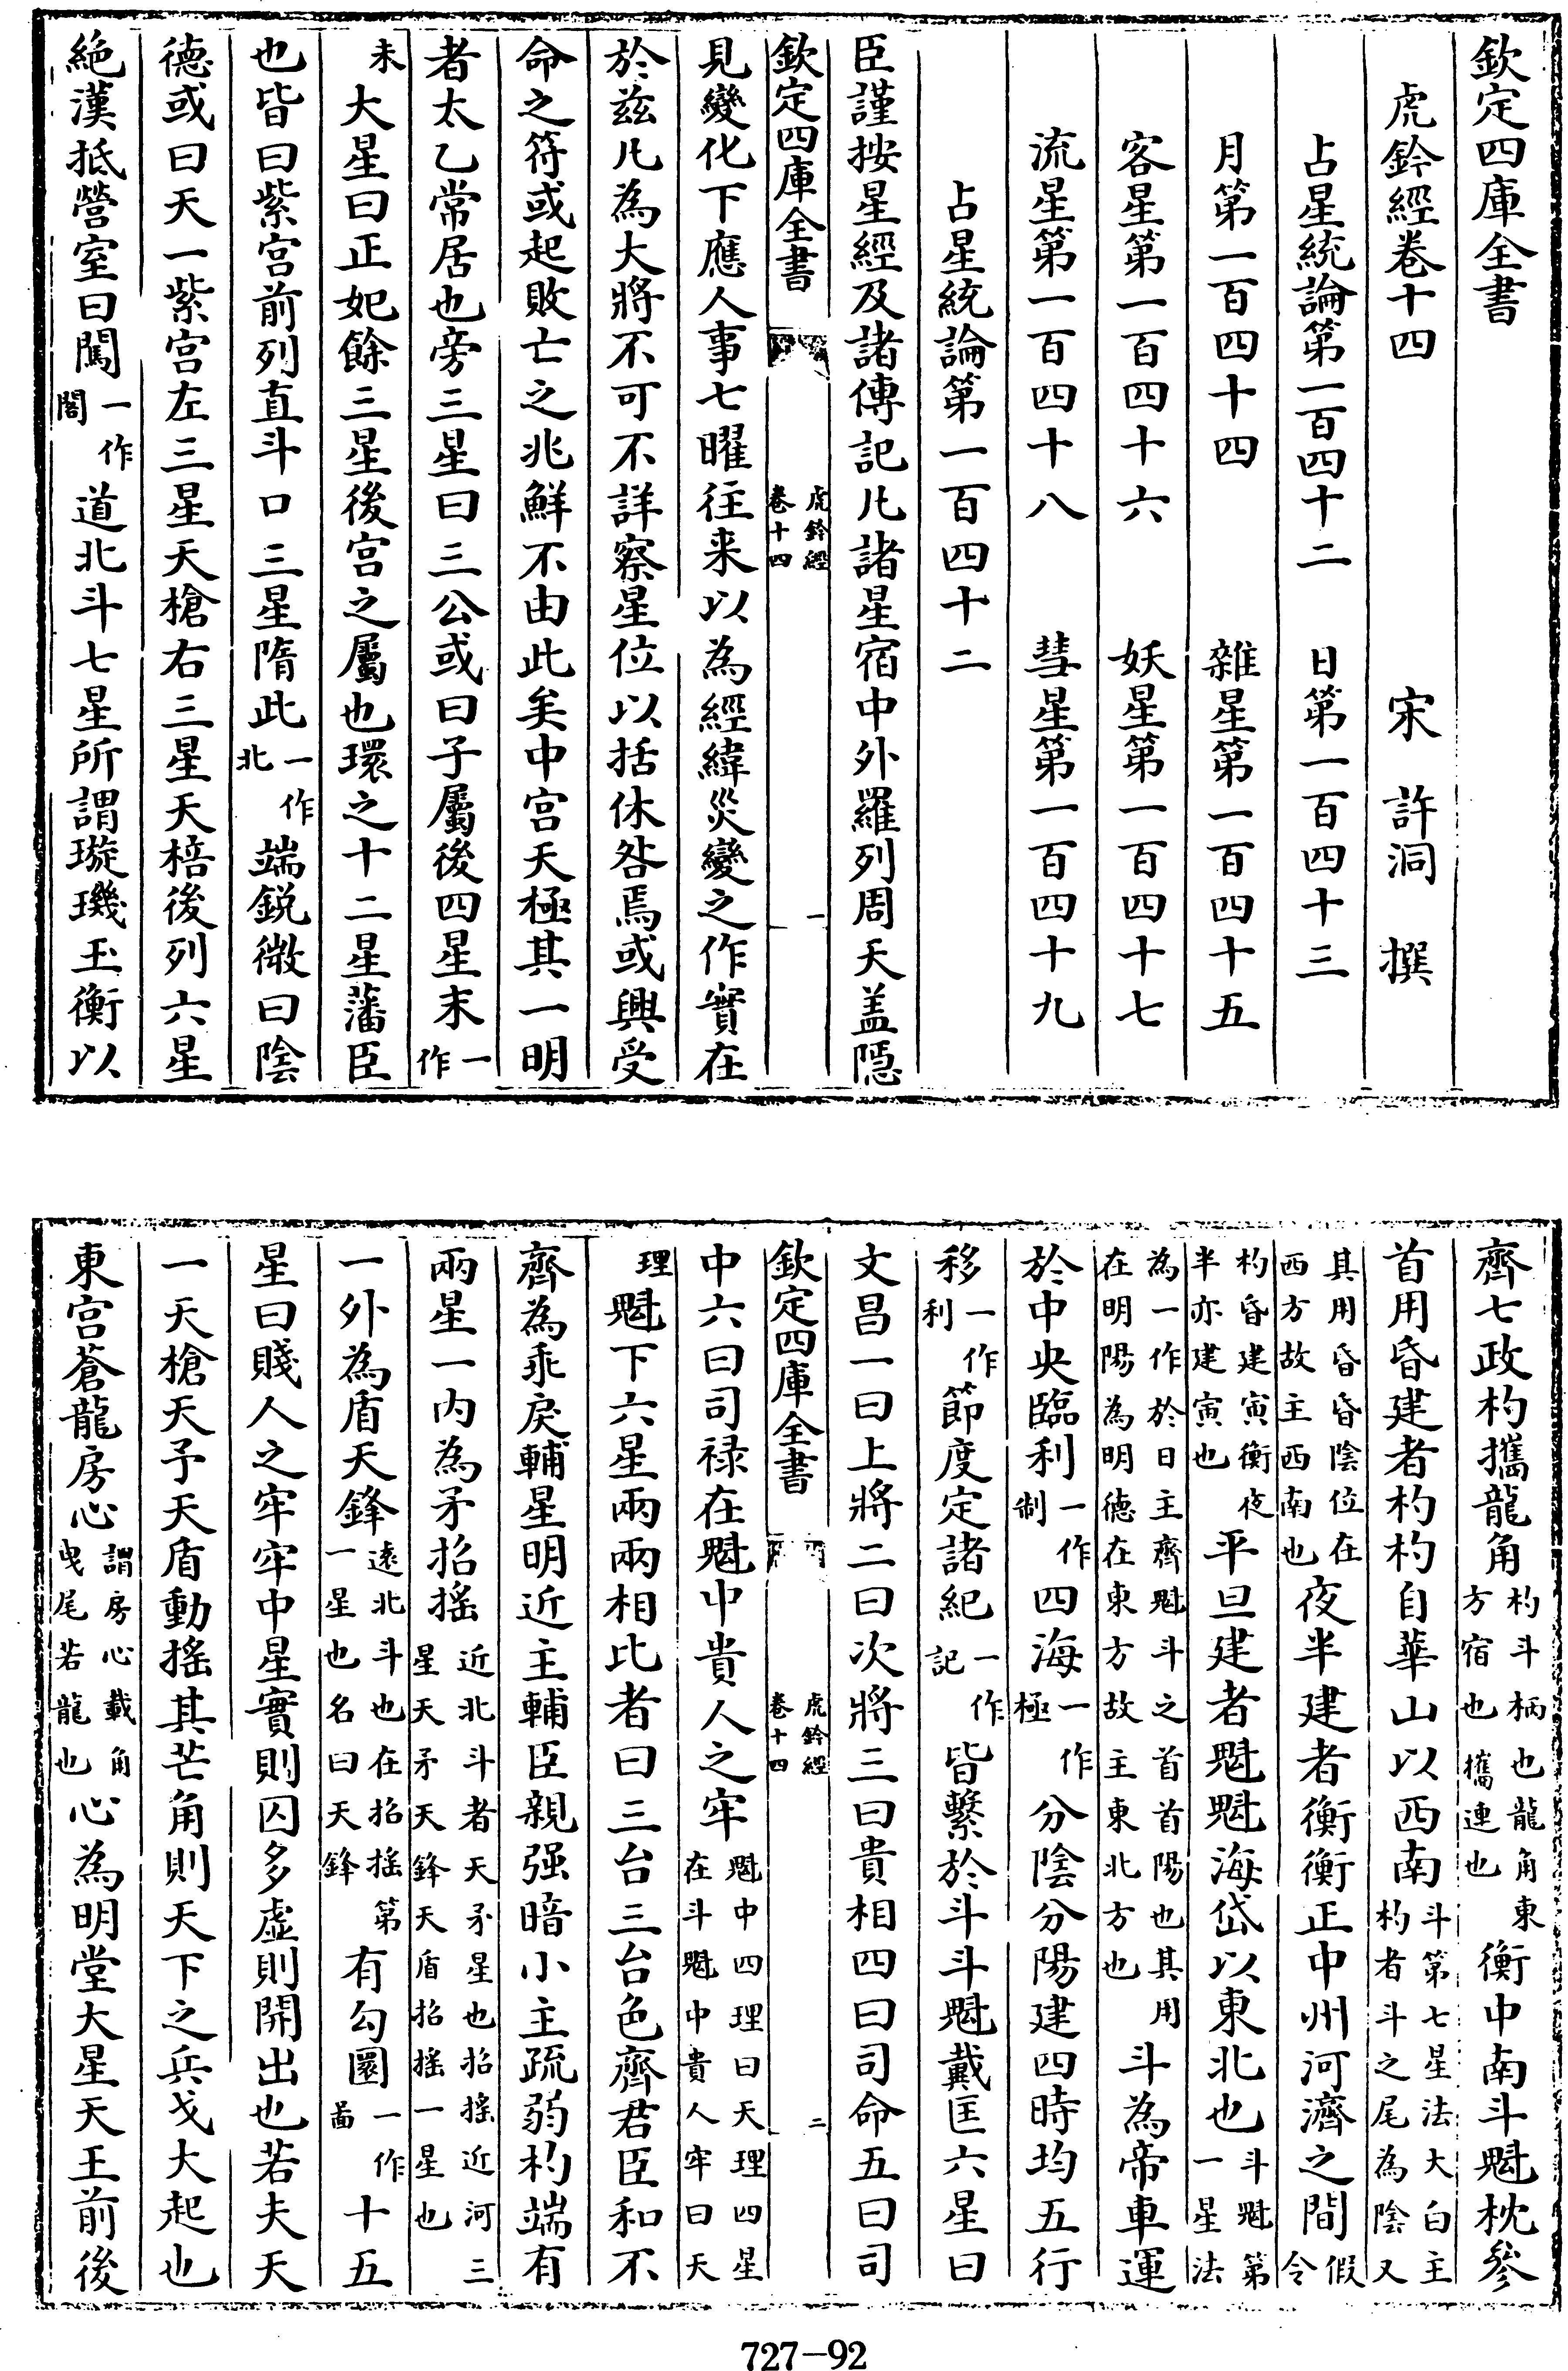 欽定四庫全書
虎鈐經卷十四 宋 許洞 撰
占星統論第一百四十二 日第一百四十三
月第一百四十四 雜星第一百四十五
客星第一百四十六 妖星第一百四十七
流星第一百四十八 彗星第一百四十九
占星統論第一百四十二
臣謹按星經及諸傳記凡諸星宿中外羅列周天盖隠
欽定四庫全書 虎鈐經 卷十四 一
見變化下應人事七曜往来以為經緯災變之作實在
於兹凡為大將不可不詳察星位以括休咎焉或興受
命之符或起敗亡之兆鮮不由此矣中宫天極其一明
者太乙常居也旁三星曰三公或曰子屬後四星末一作
未大星曰正妃餘三星後宫之屬也環之十二星藩臣
也皆曰紫宫前列直斗口三星隋此一作北端鋭微曰隂
德或曰天一紫宫左三星天槍右三星天棓後列六星
絶漢抵營室曰闖一作閣道北斗七星所謂璇璣玉衡以
齊七政杓攜龍角杓斗柄也龍角東方宿也攜連也衡中南斗魁枕參
首用昏建者杓杓自華山以西南斗第七星法大白主杓者斗之尾為隂又
其用昏昏隂位在西方故主西南也夜半建者衡衡正中州河濟之間假令
杓昏建寅衡夜半亦建寅也平旦建者魁魁海岱以東北也斗魁第一星法
為一作於日主齊魁斗之首首陽也其用在明陽為明徳在東方故主東北方也斗為帝車運
於中央臨利一作制四海一作極分隂分陽建四時均五行
移一作利節度定諸紀一作記皆繫於斗斗魁戴匡六星曰
文昌一曰上將二曰次將三曰貴相四曰司命五曰司
欽定四庫全書 虎鈐經 卷十四 二
中六曰司禄在魁中貴人之牢魁中四理曰天理四星在斗魁中貴人牢曰天
理魁下六星兩兩相比者曰三台三台色齊君臣和不
齊為乖戾輔星明近主輔臣親强暗小主疏弱杓端有
兩星一内為矛招摇近北斗者天矛星也招摇近河三星天矛天鋒天盾招摇一星也
一外為盾天鋒逺北斗也在招摇第一星也名曰天鋒有勾圜一作圖十五
星曰賤人之牢牢中星實則囚多虚則開出也若夫天
一天槍天予天盾動摇其芒角則天下之兵戈大起也
東宫蒼龍房心謂房心載角曳尾若龍也心為明堂大星天王前後
727-92